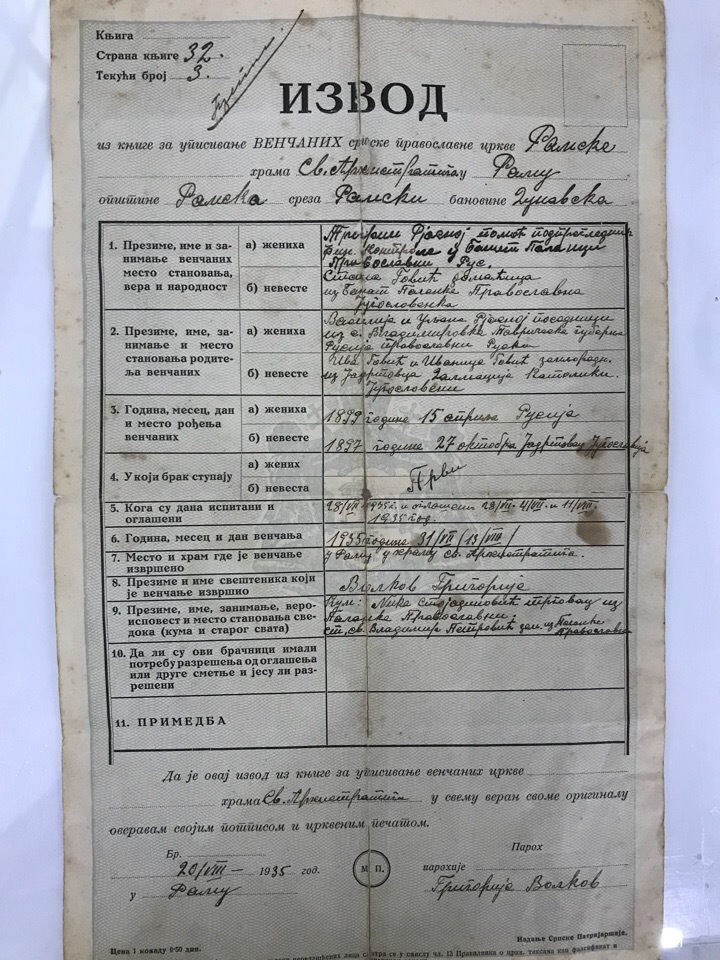 Књига
Страна књиге 32.
Текући број 3.
ИЗВОД
из књиге за уписивање ВЕНЧАНИХ српске православне цркве Рамске
храма Св. Архистратига у Раму
општине Рамска среза Рамски бановине Дунавска
1. Презиме, име и за-
нимање венчаних
место становања,
вера и народност
а) жениха
Трофим помоћ. подпрегледник
фин. Контроле у Банат. Паланци
Православни Рус.
б) невесте
Стана Говић домаћица
из Банат. Паланке Православна
Југословенка
2. Презиме, име, за-
нимање и место
становања родите-
ља венчаних
а) жениха
Василија и Уљана поседници
из с. Владимировка Таврическа губерња
Русија православни Руси
б) невесте
Ива Говић и Иванице Говић
из Јадртовца Далмација Католики.
Југословени
3. Година, месец, дан
и место рођења
венчаних
а) жениха
1899 године 15 априла Русија
б) невесте
1897 године 27 октобра Јадртовац Југославија
4. У који брак ступају
а) жених
б) невеста
Први
5. Кога су дана испитани и
оглашени
28/VII 1935 г. и оглашени 28/VII 4/VIII и 11/VIII
1935 год.
6. Година, месец и дан венчања
1935 године 31/VII /13/VIII/
7. Место и храм где је венчање
извршено
у Раму у храму св. Архистратига.
8. Презиме и име свештеника који
је венчање извршио
Волков Григорије
9. Презиме, име, занимање, веро-
исповест и место становања све-
дока (кума и старог свата)
Кум: Ника Стојадиновић трговац из
Паланке Православни.
ст. св. Владимир Петровић из Паланке
Православни
10. Да ли су ови брачници имали
потребу разрешења од оглашења
или друге сметње и јесу ли раз-
решени
11. ПРИМЕДБА
Да је овај извод из књиге за уписивање венчаних цркве
храма Св. Архистратига у свему веран своме оригиналу
оверавам својим потписом и црквеним печатом.
Бр.
20/VIII – 1935 год.
у Раму
М П.
Парох
парохије
Григорије Волков
Издање Српске Патријаршије.
Цена 1 комаду 0·50 дин.